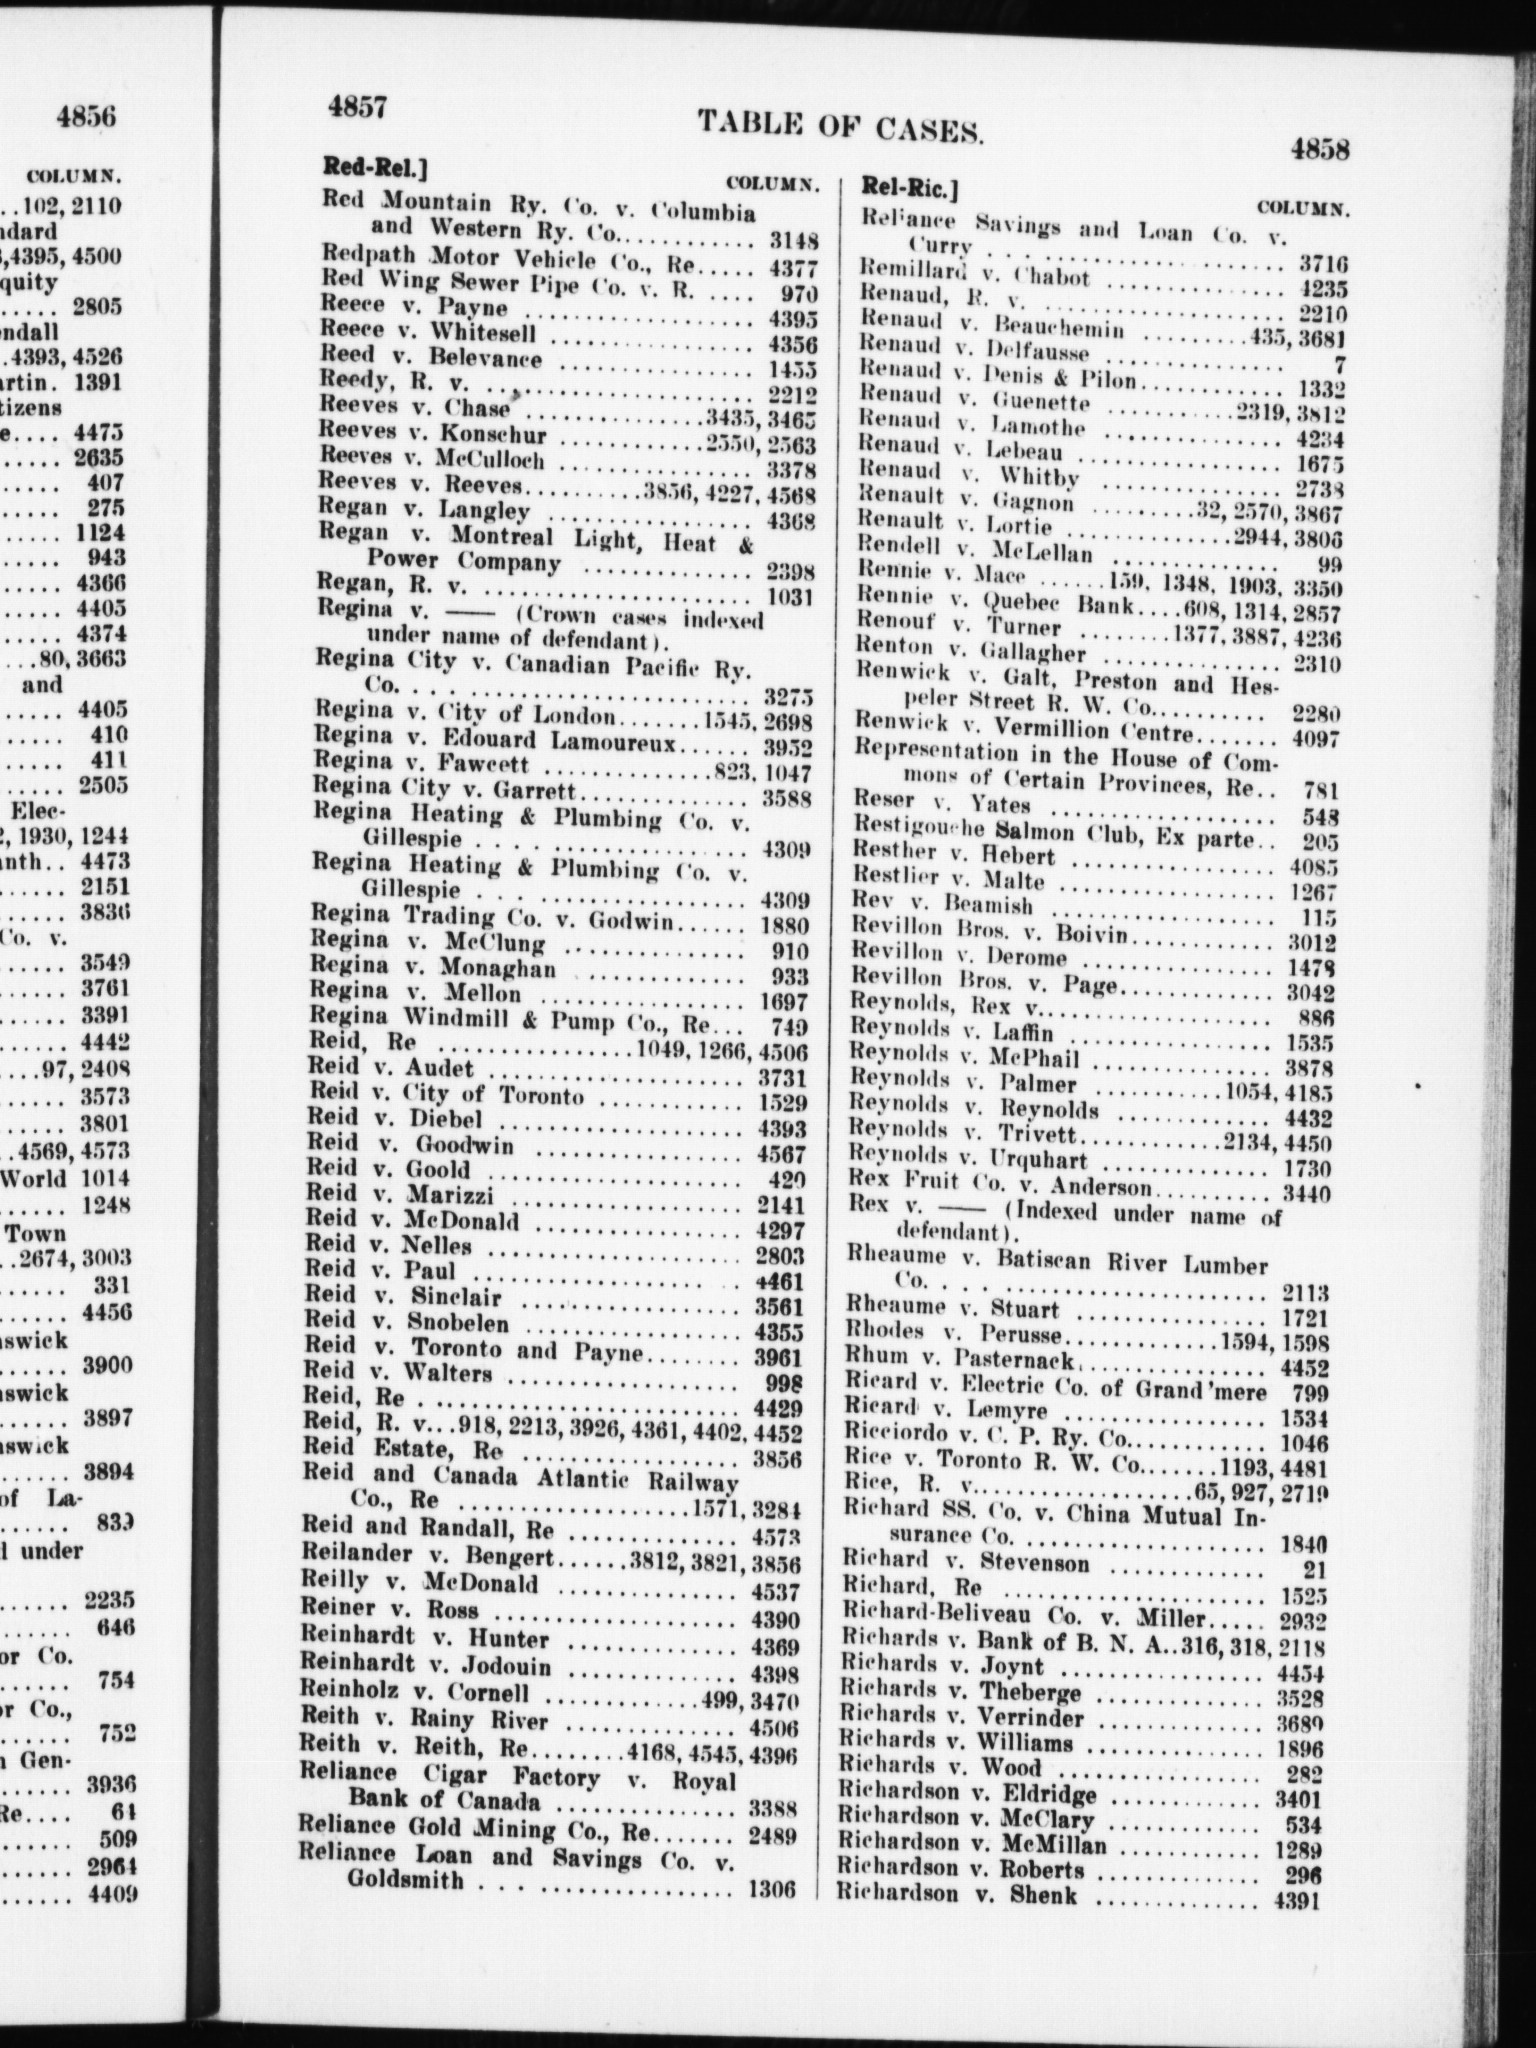 4856
COLUMN.
..102, 2110
ndard
,4395, 4500
quity
..... 2805
endall
..4393, 4526
artin. 1391
tizens
e.... 4475
..... 2635
..... 407
..... 275
..... 1124
..... 943
..... 4366
..... 4405
..... 4374
...80, 3663
and
..... 4405
..... 410
..... 411
..... 2505
Elec-
2, 1930, 1244
anth.. 4473
...... 2151
...... 3836
Co. v.
...... 3549
...... 3761
...... 3391
...... 4442
....97, 2408
...... 3573
...... 3801
..4569, 4573
World 1014
...... 1248
Town
..2674, 3003
...... 331
...... 4456
nswick
...... 3900
nswick
...... 3897
nswick
...... 3894
of La-
...... 839
d under
...... 2235
...... 646
or Co.
...... 754
or Co.,
...... 752
n Gen-
...... 3936
Re.... 64
...... 509
...... 2964
...... 4409
4857
TABLE OF CASES.
4858
Red-Rel.]
COLUMN.
Red Mountain Ry. Co. v. Columbia
and Western Ry. Co............ 3148
Redpath Motor Vehicle Co., Re..... 4377
Red Wing Sewer Pipe Co. v. R. .... 970
Reece v. Payne .................. 4395
Reece v. Whitesell ................ 4356
Reed v. Belevance ............... 1455
Reedy, R. v. ..................... 2212
Reeves v. Chase ..............3435, 3465
Reeves v. Konschur ............2550, 2563
Reeves v. McCulloch ............... 3378
Reeves v. Reeves..........3856, 4227, 4568
Regan v. Langley ................ 4368
Regan v. Montreal Light, Heat &
Power Company .............. 2398
Regan, R. v. ...................... 1031
Regina v. —— (Crown cases indexed
under name of defendant).
Regina City v. Canadian Pacific Ry.
Co. .......................... 3275
Regina v. City of London.......1545, 2698
Regina v. Edouard Lamoureux...... 3952
Regina v. Fawcett ..............823, 1047
Regina City v. Garrett.............. 3588
Regina Heating & Plumbing Co. v.
Gillespie ..................... 4309
Regina Heating & Plumbing Co. v.
Gillespie ..................... 4309
Regina Trading Co. v. Godwin...... 1880
Regina v. McClung ............... 910
Regina v. Monaghan ............. 933
Regina v. Mellon ................. 1697
Regina Windmill & Pump Co., Re... 749
Reid, Re ................1049, 1266, 4506
Reid v. Audet ..................... 3731
Reid v. City of Toronto ............ 1529
Reid v. Diebel .................... 4393
Reid v. Goodwin ................. 4567
Reid v. Goold ..................... 420
Reid v. Marizzi ................... 2141
Reid v. McDonald ................. 4297
Reid v. Nelles ..................... 2803
Reid v. Paul ...................... 4461
Reid v. Sinclair ................... 3561
Reid v. Snobelen .................. 4355
Reid v. Toronto and Payne........ 3961
Reid v. Walters ................... 998
Reid, Re ......................... 4429
Reid, R. v...918, 2213, 3926, 4361, 4402, 4452
Reid Estate, Re .................. 3856
Reid and Canada Atlantic Railway
Co., Re ...................1571, 3284
Reid and Randall, Re .............. 4573
Reilander v. Bengert......3812, 3821, 3856
Reilly v. McDonald ............... 4537
Reiner v. Ross .................... 4390
Reinhardt v. Hunter .............. 4369
Reinhardt v. Jodouin .............. 4398
Reinholz v. Cornell .............499, 3470
Reith v. Rainy River .............. 4506
Reith v. Reith, Re........4168, 4545, 4396
Reliance Cigar Factory v. Royal
Bank of Canada ............... 3388
Reliance Gold Mining Co., Re....... 2489
Reliance Loan and Savings Co. v.
Goldsmith ..................... 1306
Rel-Ric.]
COLUMN.
Reliance Savings and Loan Co. v.
Curry ......................... 3716
Remillard v. Chabot .............. 4235
Renaud, R. v. .................... 2210
Renaud v. Beauchemin .........435, 3681
Renaud v. Delfausse .............. 7
Renaud v. Denis & Pilon........... 1332
Renaud v. Guenette ...........2319, 3812
Renaud v. Lamothe .............. 4234
Renaud v. Lebeau ................ 1675
Renaud v. Whitby ............... 2738
Renault v. Gagnon .........32, 2570, 3867
Renault v. Lortie ..............2944, 3806
Rendell v. McLellan .............. 99
Rennie v. Mace ......159, 1348, 1903, 3350
Rennie v. Quebec Bank....608, 1314, 2857
Renouf v. Turner ........1377, 3887, 4236
Renton v. Gallagher .............. 2310
Renwick v. Galt, Preston and Hes-
peler Street R. W. Co.......... 2280
Renwick v. Vermillion Centre....... 4097
Representation in the House of Com-
mons of Certain Provinces, Re.. 781
Reser v. Yates ................... 548
Restigouche Salmon Club, Ex parte.. 205
Resther v. Hebert ................ 4085
Restlier v. Malte ................. 1267
Rev v. Beamish .................. 115
Revillon Bros. v. Boivin............ 3012
Revillon v. Derome ............... 1478
Revillon Bros. v. Page............. 3042
Reynolds, Rex v.................... 886
Reynolds v. Laffin ................ 1535
Reynolds v. McPhail .............. 3878
Reynolds v. Palmer ...........1054, 4185
Reynolds v. Reynolds ............. 4432
Reynolds v. Trivett............2134, 4450
Reynolds v. Urquhart .............. 1730
Rex Fruit Co. v. Anderson.......... 3440
Rex v. —— (Indexed under name of
defendant).
Rheaume v. Batiscan River Lumber
Co. ........................... 2113
Rheaume v. Stuart ................ 1721
Rhodes v. Perusse.............1594, 1598
Rhum v. Pasternack................ 4452
Ricard v. Electric Co. of Grand 'mere 799
Ricard v. Lemyre ................. 1534
Ricciordo v. C. P. Ry. Co............ 1046
Rice v. Toronto R. W. Co.......1193, 4481
Rice, R. v..................65, 927, 2719
Richard SS. Co. v. China Mutual In-
surance Co. .................... 1840
Richard v. Stevenson ............. 21
Richard, Re ...................... 1525
Richard-Beliveau Co. v. Miller..... 2932
Richards v. Bank of B. N. A..316, 318, 2118
Richards v. Joynt ................. 4454
Richards v. Theberge .............. 3528
Richards v. Verrinder .............. 3689
Richards v. Williams .............. 1896
Richards v. Wood ................. 282
Richardson v. Eldridge ............ 3401
Richardson v. McClary ............ 534
Richardson v. McMillan ........... 1289
Richardson v. Roberts ............. 296
Richardson v. Shenk .............. 4391